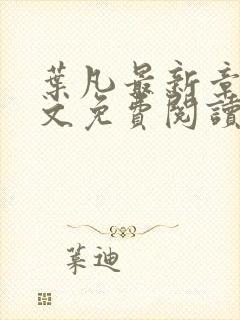 葉凡最新章
文免費閱讀
葉迪